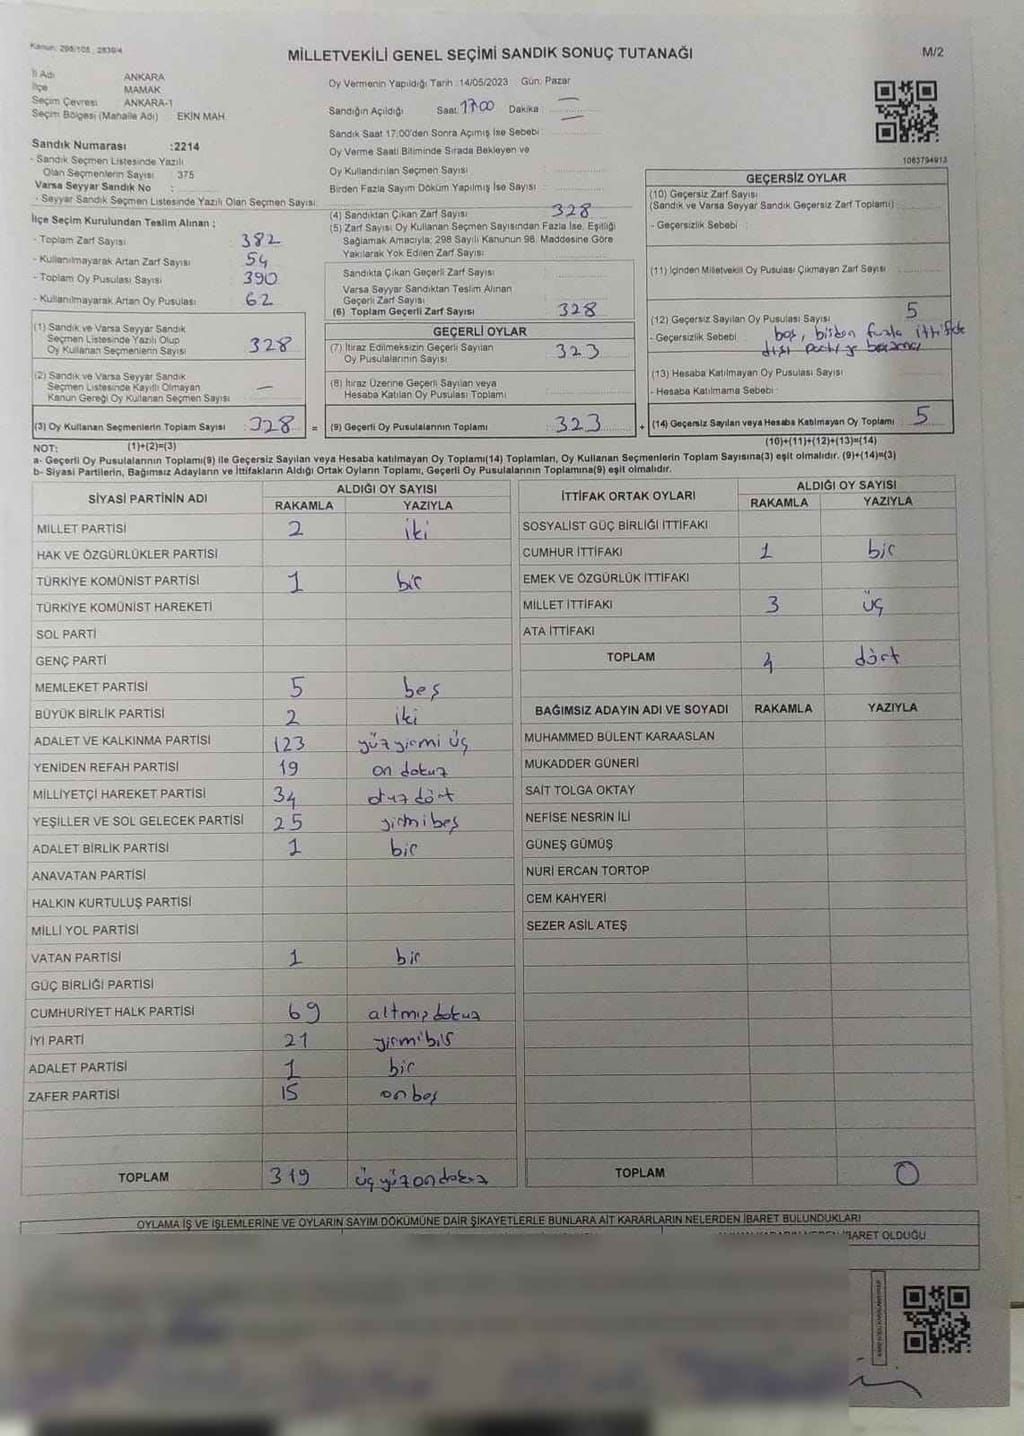 Kanun: 298/105 , 2839/4
MİLLETVEKİLİ GENEL SEÇİMİ SANDIK SONUÇ TUTANAĞI
M/2
İl Adı ANKARA
İlçe MAMAK
Seçim Çevresi ANKARA-1
Seçim Bölgesi (Mahalle Adı) EKİN MAH.
Sandık Numarası :2214
- Sandık Seçmen Listesinde Yazılı
Olan Seçmenlerin Sayısı 375
Varsa Seyyar Sandık No :
- Seyyar Sandık Seçmen Listesinde Yazılı Olan Seçmen Sayısı
İlçe Seçim Kurulundan Teslim Alınan ;
- Toplam Zarf Sayısı 382
- Kullanılmayarak Artan Zarf Sayısı 54
- Toplam Oy Pusulası Sayısı 390
- Kullanılmayarak Artan Oy Pusulası 62
(1) Sandık ve Varsa Seyyar Sandık
Seçmen Listesinde Yazılı Olup
Oy Kullanan Seçmenlerin Sayısı 328
(2) Sandık ve Varsa Seyyar Sandık
Seçmen Listesinde Kayıtlı Olmayan
Kanun Gereği Oy Kullanan Seçmen Sayısı —
(3) Oy Kullanan Seçmenlerin Toplam Sayısı : 328 =
Oy Vermenin Yapıldığı Tarih :14/05/2023 Gün: Pazar
Sandığın Açıldığı Saat 17:00 Dakika
Sandık Saat 17:00'den Sonra Açımış İse Sebebi :
Oy Verme Saati Bitiminde Sırada Bekleyen ve
Oy Kullandırılan Seçmen Sayısı :
Birden Fazla Sayım Döküm Yapılmış İse Sayısı :
(4) Sandıktan Çıkan Zarf Sayısı 328
(5) Zarf Sayısı Oy Kullanan Seçmen Sayısından Fazla İse, Eşitliği
Sağlamak Amacıyla; 298 Sayılı Kanunun 98. Maddesine Göre
Yakılarak Yok Edilen Zarf Sayısı
Sandıkta Çıkan Geçerli Zarf Sayısı
Varsa Seyyar Sandıktan Teslim Alınan
Geçerli Zarf Sayısı
(6) Toplam Geçerli Zarf Sayısı 328
GEÇERLİ OYLAR
(7) İtiraz Edilmeksizin Geçerli Sayılan
Oy Pusulalarının Sayısı 323
(8) İtiraz Üzerine Geçerli Sayılan veya
Hesaba Katılan Oy Pusulası Toplamı
(9) Geçerli Oy Pusulalarının Toplamı : 323 +
1063794913
GEÇERSİZ OYLAR
(10) Geçersiz Zarf Sayısı
(Sandık ve Varsa Seyyar Sandık Geçersiz Zarf Toplamı)
- Geçersizlik Sebebi
(11) İçinden Milletvekili Oy Pusulası Çıkmayan Zarf Sayısı
(12) Geçersiz Sayılan Oy Pusulası Sayısı 5
- Geçersizlik Sebebi boş, birden fazla ittifak
dışı partiye basımcı
(13) Hesaba Katılmayan Oy Pusulası Sayısı
- Hesaba Katılmama Sebebi :
(14) Geçersiz Sayılan veya Hesaba Katılmayan Oy Toplamı 5
NOT: (1)+(2)=(3) (10)+(11)+(12)+(13)=(14)
a- Geçerli Oy Pusulalarının Toplamı(9) ile Geçersiz Sayılan veya Hesaba katılmayan Oy Toplamı(14) Toplamları, Oy Kullanan Seçmenlerin Toplam Sayısına(3) eşit olmalıdır. (9)+(14)=(3)
b- Siyasi Partilerin, Bağımsız Adayların ve İttifakların Aldığı Ortak Oyların Toplamı, Geçerli Oy Pusulalarının Toplamına(9) eşit olmalıdır.
SİYASİ PARTİNİN ADI ALDIĞI OY SAYISI
RAKAMLA YAZIYLA
MİLLET PARTİSİ 2 iki
HAK VE ÖZGÜRLÜKLER PARTİSİ
TÜRKİYE KOMÜNİST PARTİSİ 1 bir
TÜRKİYE KOMÜNİST HAREKETİ
SOL PARTİ
GENÇ PARTİ
MEMLEKET PARTİSİ 5 beş
BÜYÜK BİRLİK PARTİSİ 2 iki
ADALET VE KALKINMA PARTİSİ 123 yüz yirmi üç
YENİDEN REFAH PARTİSİ 19 on dokuz
MİLLİYETÇİ HAREKET PARTİSİ 34 otuz dört
YEŞİLLER VE SOL GELECEK PARTİSİ 25 yirmi beş
ADALET BİRLİK PARTİSİ 1 bir
ANAVATAN PARTİSİ
HALKIN KURTULUŞ PARTİSİ
MİLLİ YOL PARTİSİ
VATAN PARTİSİ 1 bir
GÜÇ BİRLİĞİ PARTİSİ
CUMHURİYET HALK PARTİSİ 69 altmış dokuz
İYİ PARTİ 21 yirmi bir
ADALET PARTİSİ 1 bir
ZAFER PARTİSİ 15 on beş
TOPLAM 319 üç yüz on dokuz
İTTİFAK ORTAK OYLARI ALDIĞI OY SAYISI
RAKAMLA YAZIYLA
SOSYALİST GÜÇ BİRLİĞİ İTTİFAKI
CUMHUR İTTİFAKI 1 bir
EMEK VE ÖZGÜRLÜK İTTİFAKI
MİLLET İTTİFAKI 3 üç
ATA İTTİFAKI
TOPLAM 4 dört
BAĞIMSIZ ADAYIN ADI VE SOYADI RAKAMLA YAZIYLA
MUHAMMED BÜLENT KARAASLAN
MUKADDER GÜNERİ
SAİT TOLGA OKTAY
NEFİSE NESRİN İLİ
GÜNEŞ GÜMÜŞ
NURİ ERCAN TORTOP
CEM KAHYERİ
SEZER ASİL ATEŞ
TOPLAM 0
OYLAMA İŞ VE İŞLEMLERİNE VE OYLARIN SAYIM DÖKÜMÜNE DAİR ŞİKAYETLERLE BUNLARA AİT KARARLARIN NELERDEN İBARET BULUNDUKLARI
İBARET OLDUĞU